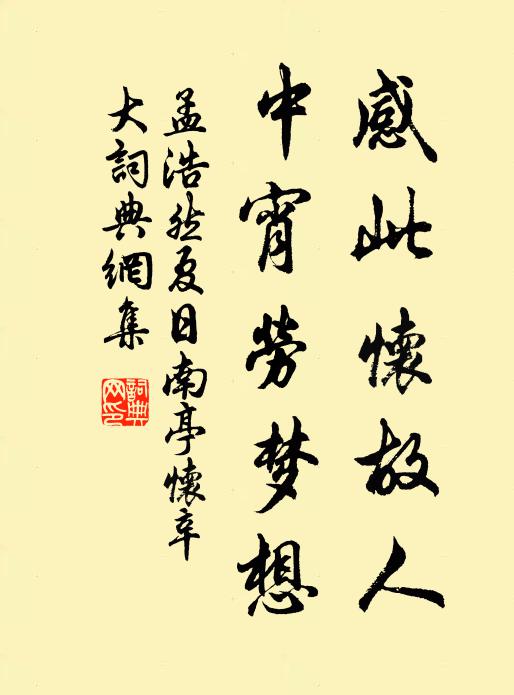 感此懷故人
中宵勞梦想
孟浩然夏日南亭懷辛
大詞典網集
詞典
网印